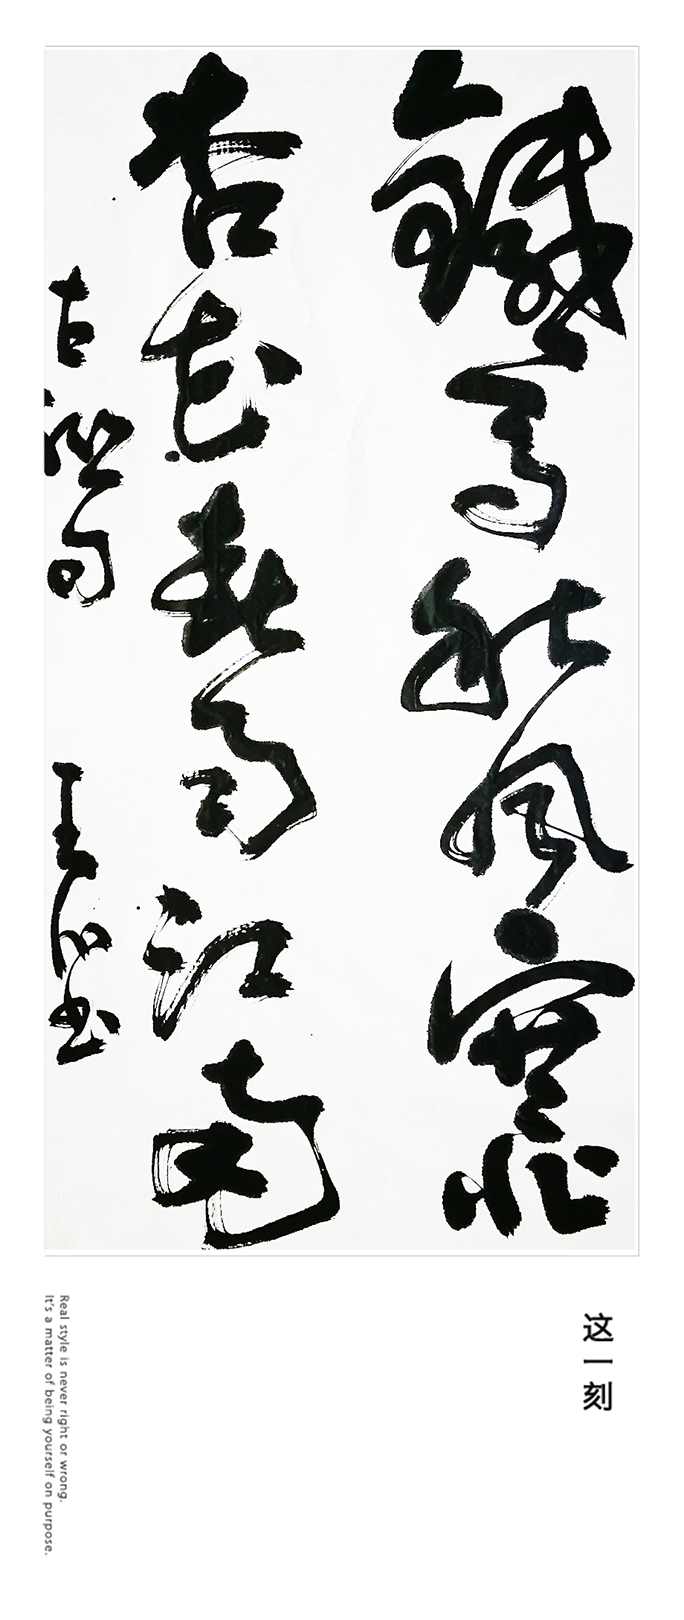 鐵馬秋風塞北
杏花春雨江南
古聯句
王 書
这一刻
Real style is never right or wrong.
It's a matter of being yourself on purpose.